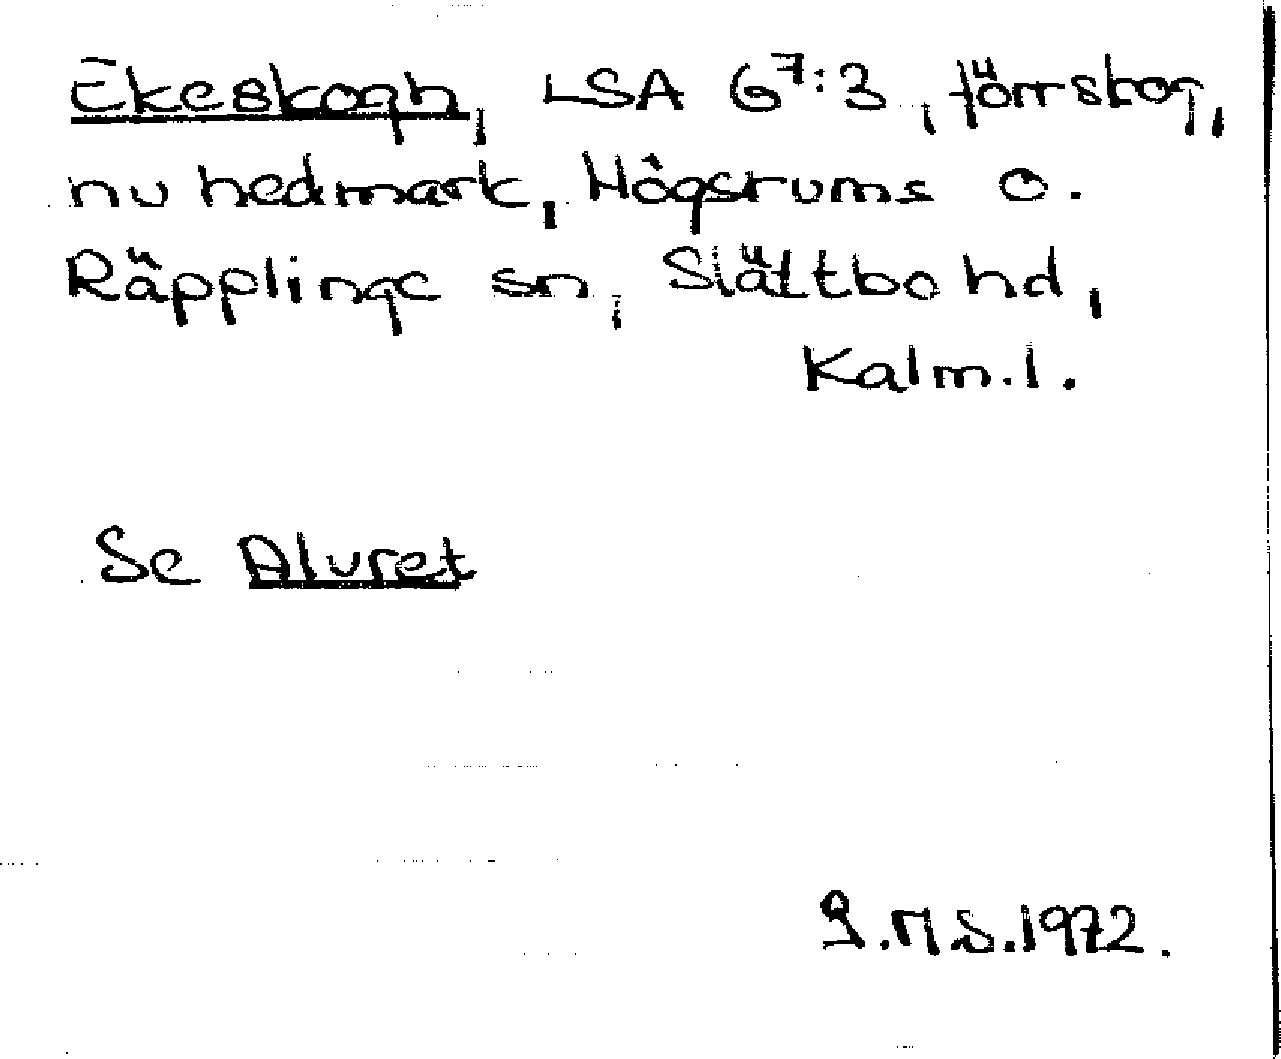 Ekeskogh, LSA G⁷:3, förr skog,
nu hedmark, Högsrums o.
Räpplinge sn, Slättbo hd,
Kalm.l.
Se Alvret
G.M.S. 1972.